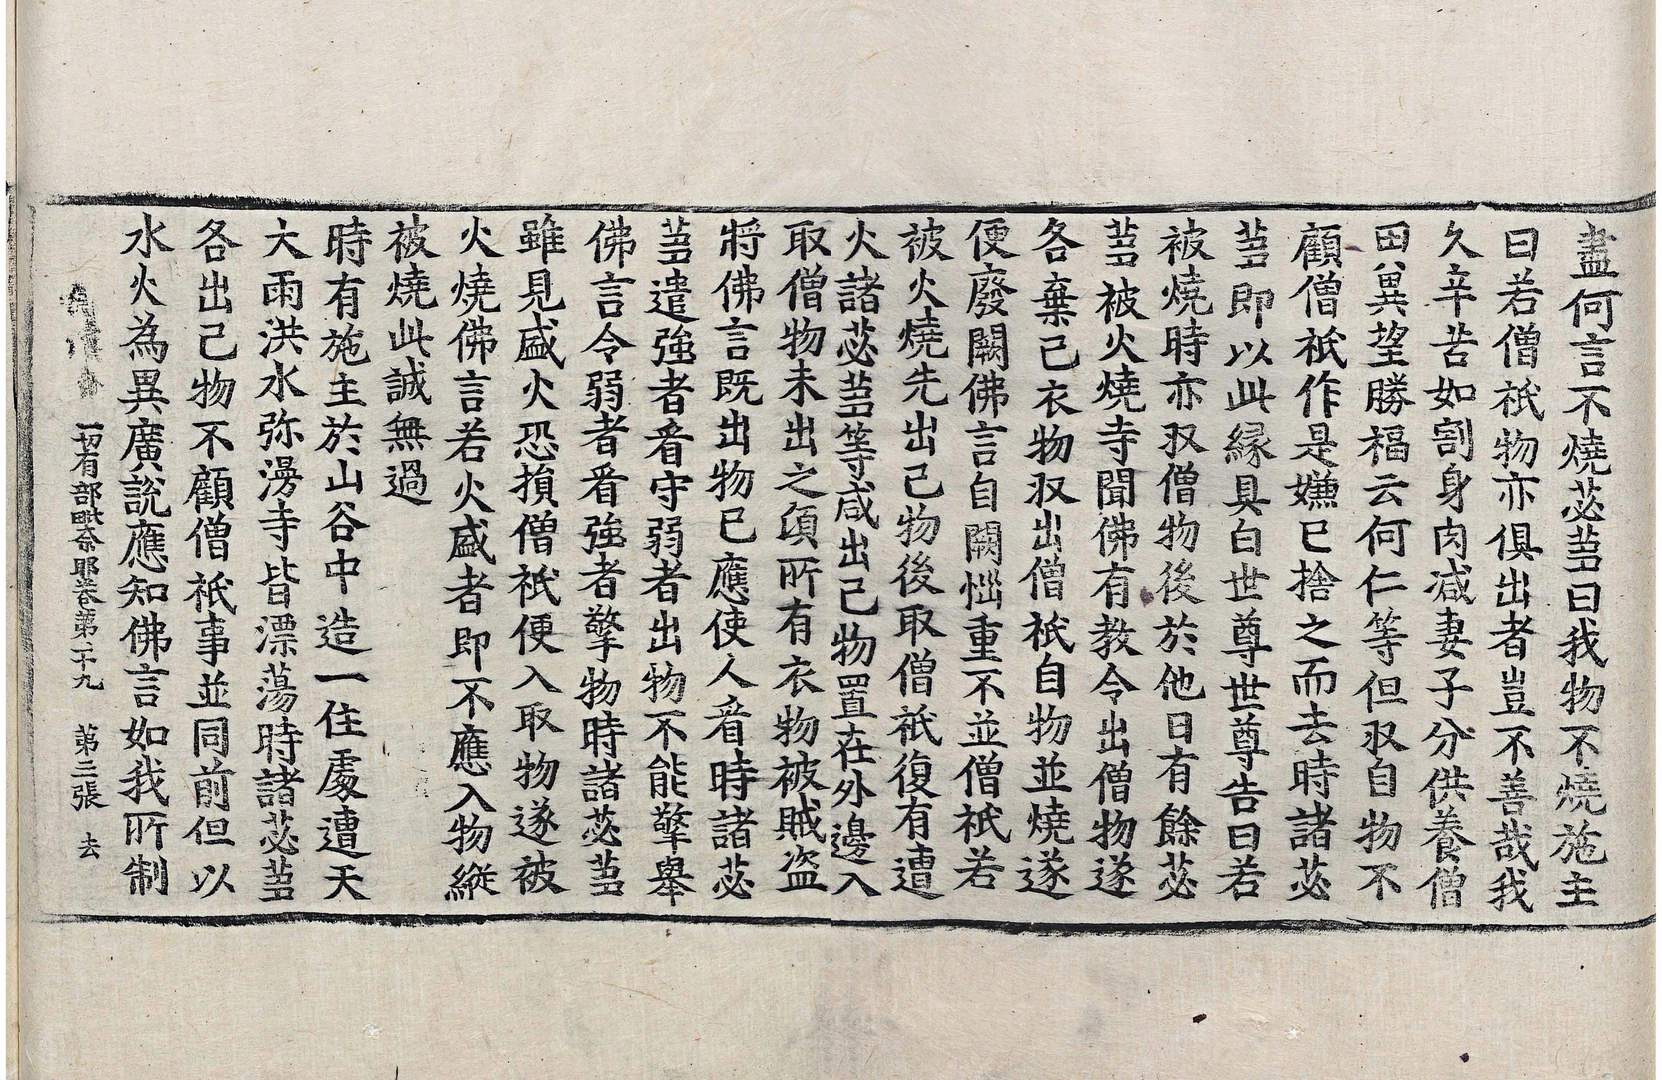 盡何言不燒苾蒭曰我物不燒施主
曰若僧祇物亦俱出者豈不善哉我
久辛苦如割身肉減妻子分供養僧
田兾望勝福云何仁等但収自物不
顧僧祇作是嫌已捨之而去時諸苾
蒭即以此縁具白世尊世尊告曰若
被燒時亦収僧物後於他日有餘苾
蒭被火燒寺聞佛有教令出僧物遂
各棄己衣物収出僧祇自物並燒遂
便廢闕佛言自闕怞重不並僧祇若
被火燒先出己物後取僧祇復有遭
火諸苾蒭等咸出己物置在外邊入
取僧物未出之頃所有衣物被賊盗
將佛言既出物已應使人看時諸苾
蒭遣強者看守弱者出物不能擎舉
佛言令弱者看強者擎物時諸苾蒭
雖見盛火恐損僧祇便入取物遂被
火燒佛言若火盛者即不應入物縱
被燒此誠無過
時有施主於山谷中造一住處遭天
大雨洪水弥漫寺皆漂蕩時諸苾蒭
各出己物不顧僧祇事並同前但以
水火為異廣說應知佛言如我所制
一切有部毗奈耶卷第二十九 第三張 去